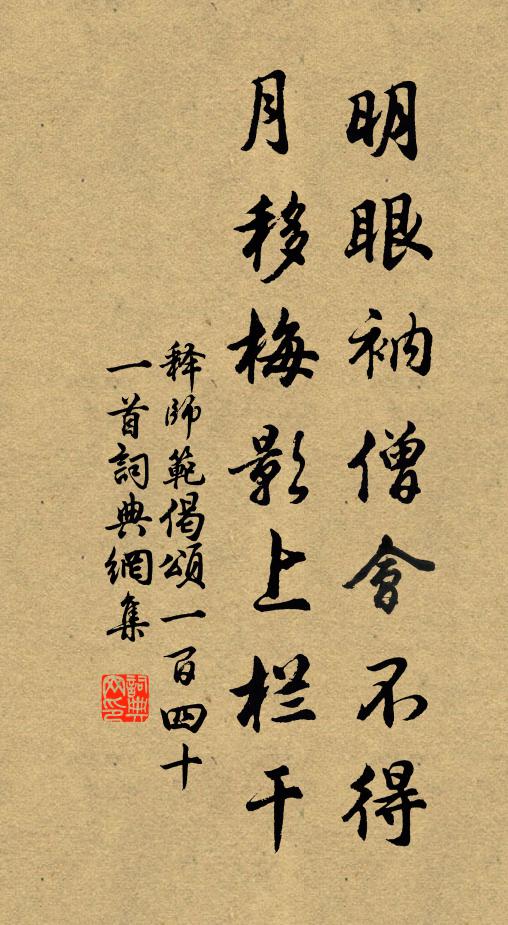 明眼衲僧會不得
月移梅影上栏干
释師範偈頌一百四十
一首詞典網集
詞典
网印